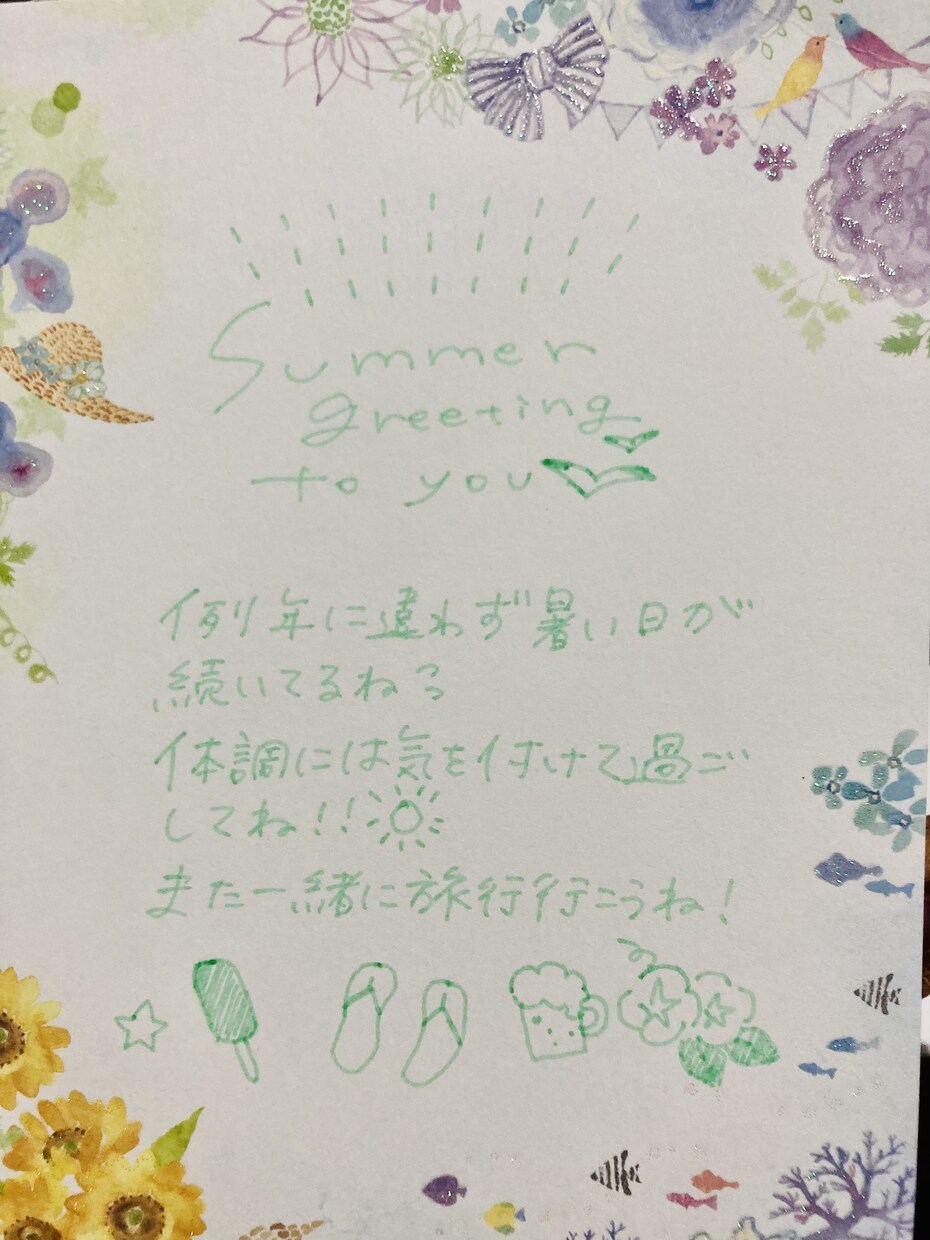 Summer
greeting
to you
例年に違わず暑い日が
続いてるねっ
体調には気を付けて過ご
してね!!
また一緒に旅行行こうね!